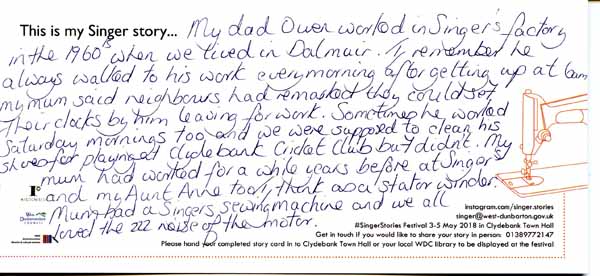 This is my Singer story... My dad Owen worked in Singer's factory
in the 1960s when we lived in Dalmuir. I remember he
always walked to his work every morning after getting up at 6am
my mum said neighbours had remarked they could set
their clocks by him leaving for work. Sometimes he worked
Saturday mornings too and we were supposed to clean his
shoes for playing at Clydebank Cricket Club but didn't. My
mum had worked for a while years before at Singers
and my Aunt Anne too, I think as a stator winder.
Mum had a Singers sewing machine and we all
loved the zzz noise of the motor.
instagram.com/singer.stories
singer@west-dunbarton.gov.uk
#SingerStories Festival 3-5 May 2018 in Clydebank Town Hall
Get in touch if you would like to share your story in person: 01389772147
Please hand your completed story card in to Clydebank Town Hall or your local WDC library to be displayed at the festival